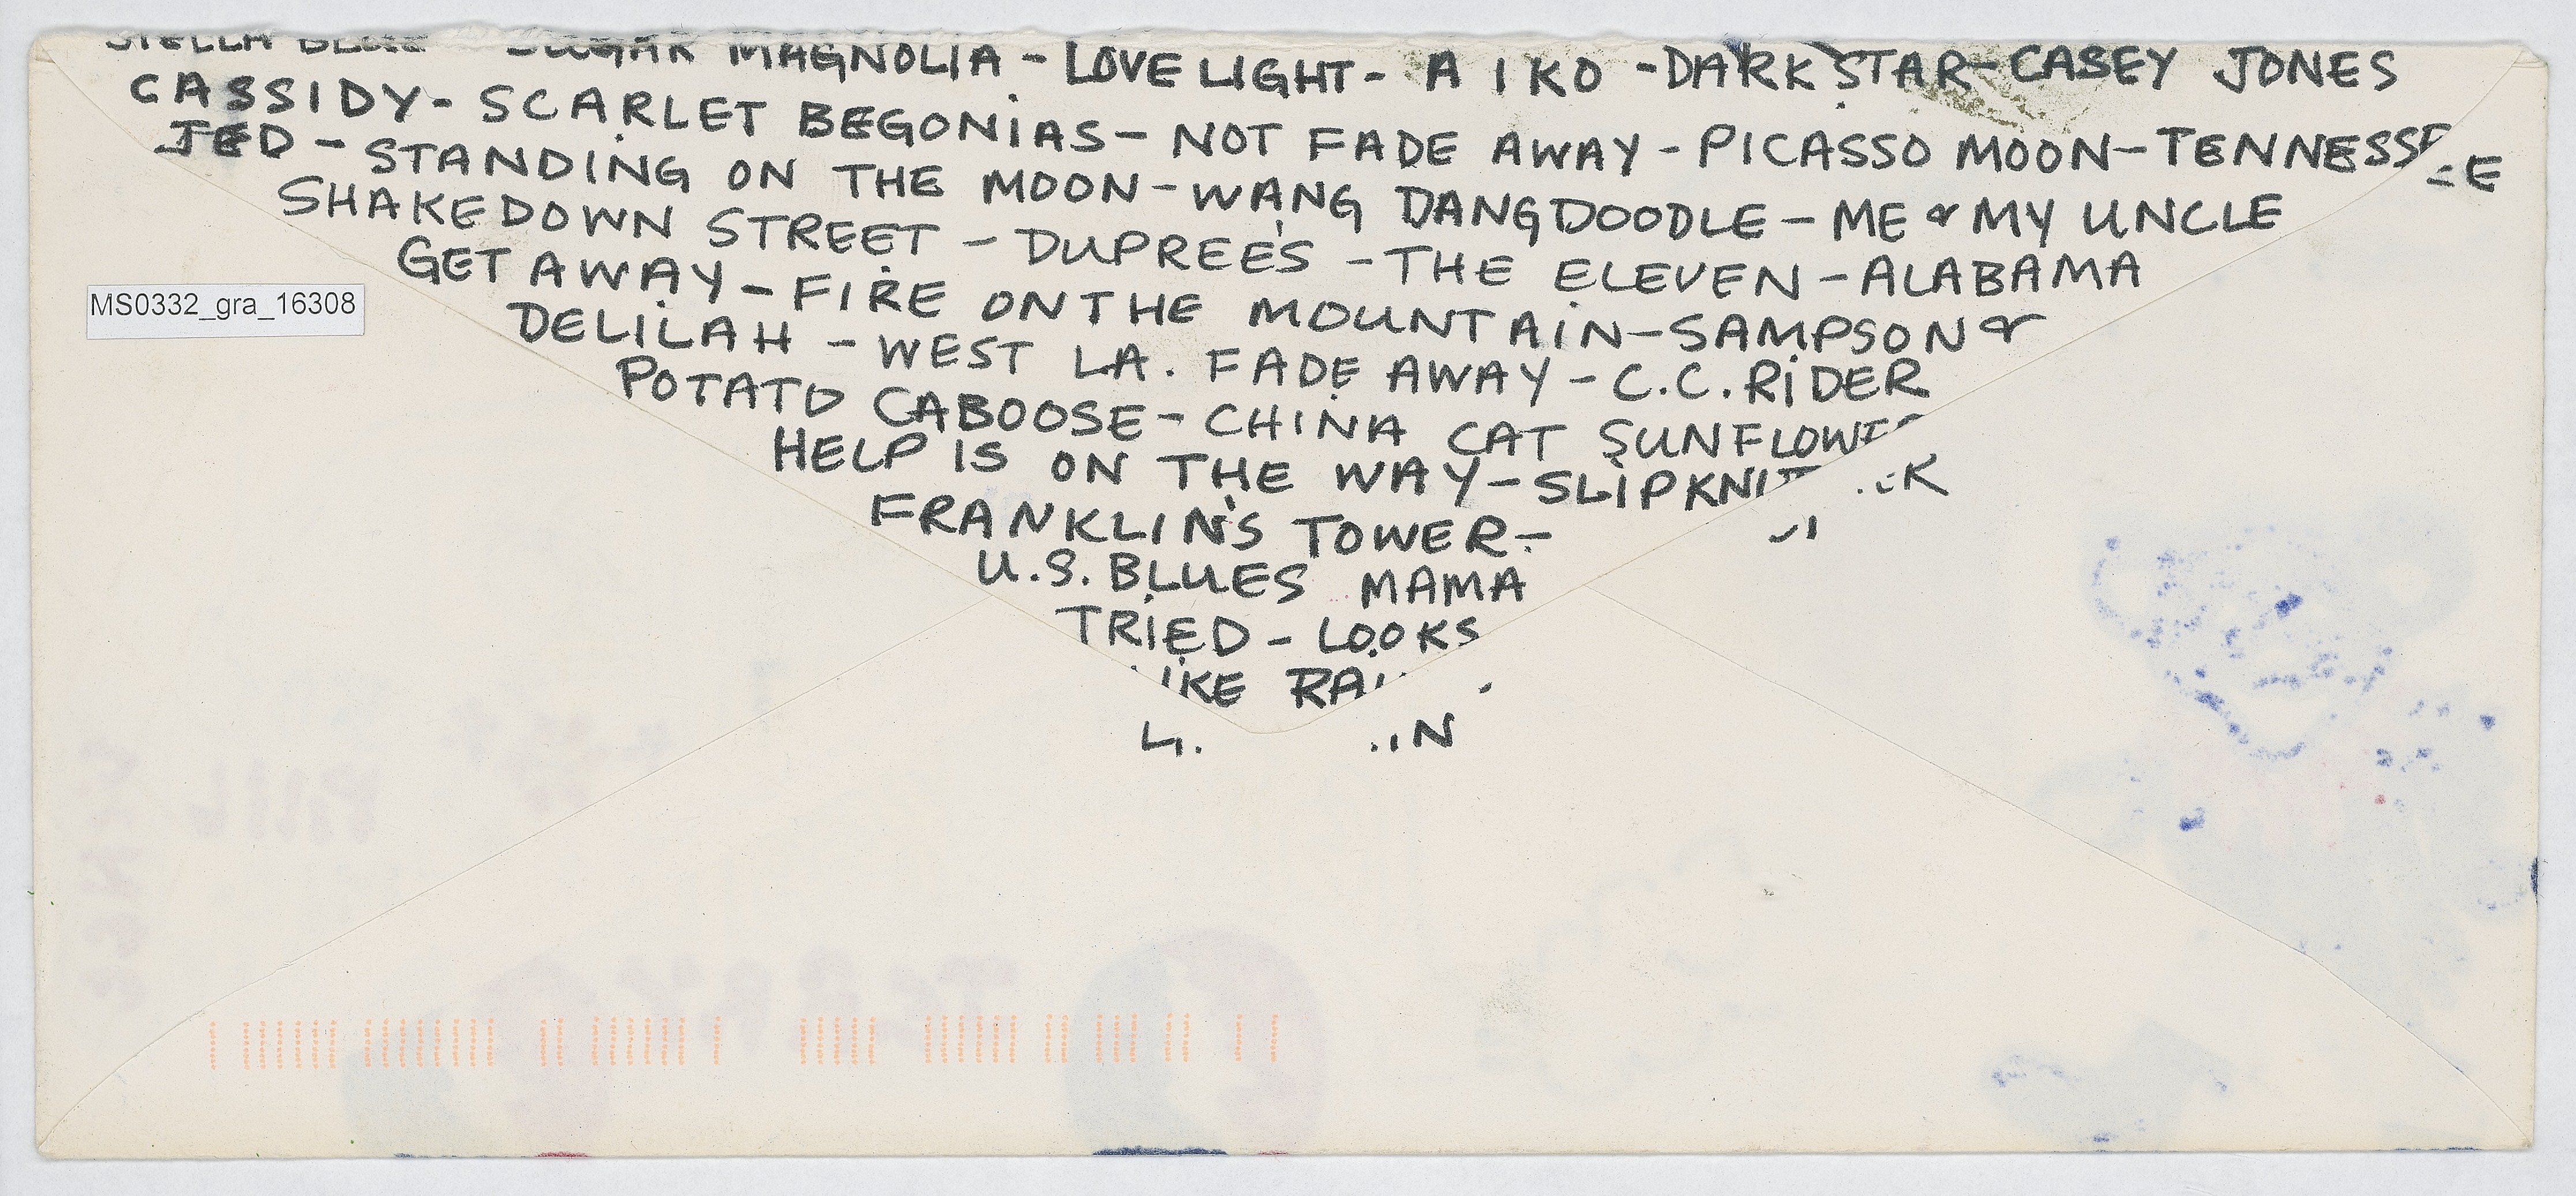 STELLA BLUE - SUGAR MAGNOLIA - LOVE LIGHT - A IKO - DARK STAR - CASEY JONES
CASSIDY - SCARLET BEGONIAS - NOT FADE AWAY - PICASSO MOON - TENNESSEE
JED - STANDING ON THE MOON - WANG DANG DOODLE - ME & MY UNCLE
SHAKEDOWN STREET - DUPREE'S - THE ELEVEN - ALABAMA
GET AWAY - FIRE ON THE MOUNTAIN - SAMPSON &
DELILAH - WEST L.A. FADE AWAY - C.C. RIDER
POTATO CABOOSE - CHINA CAT SUNFLOWER
HELP IS ON THE WAY - SLIPKNOT
FRANKLIN'S TOWER -
U.S. BLUES MAMA
TRIED - LOOKS
LIKE RAIN
MS0332_gra_16308